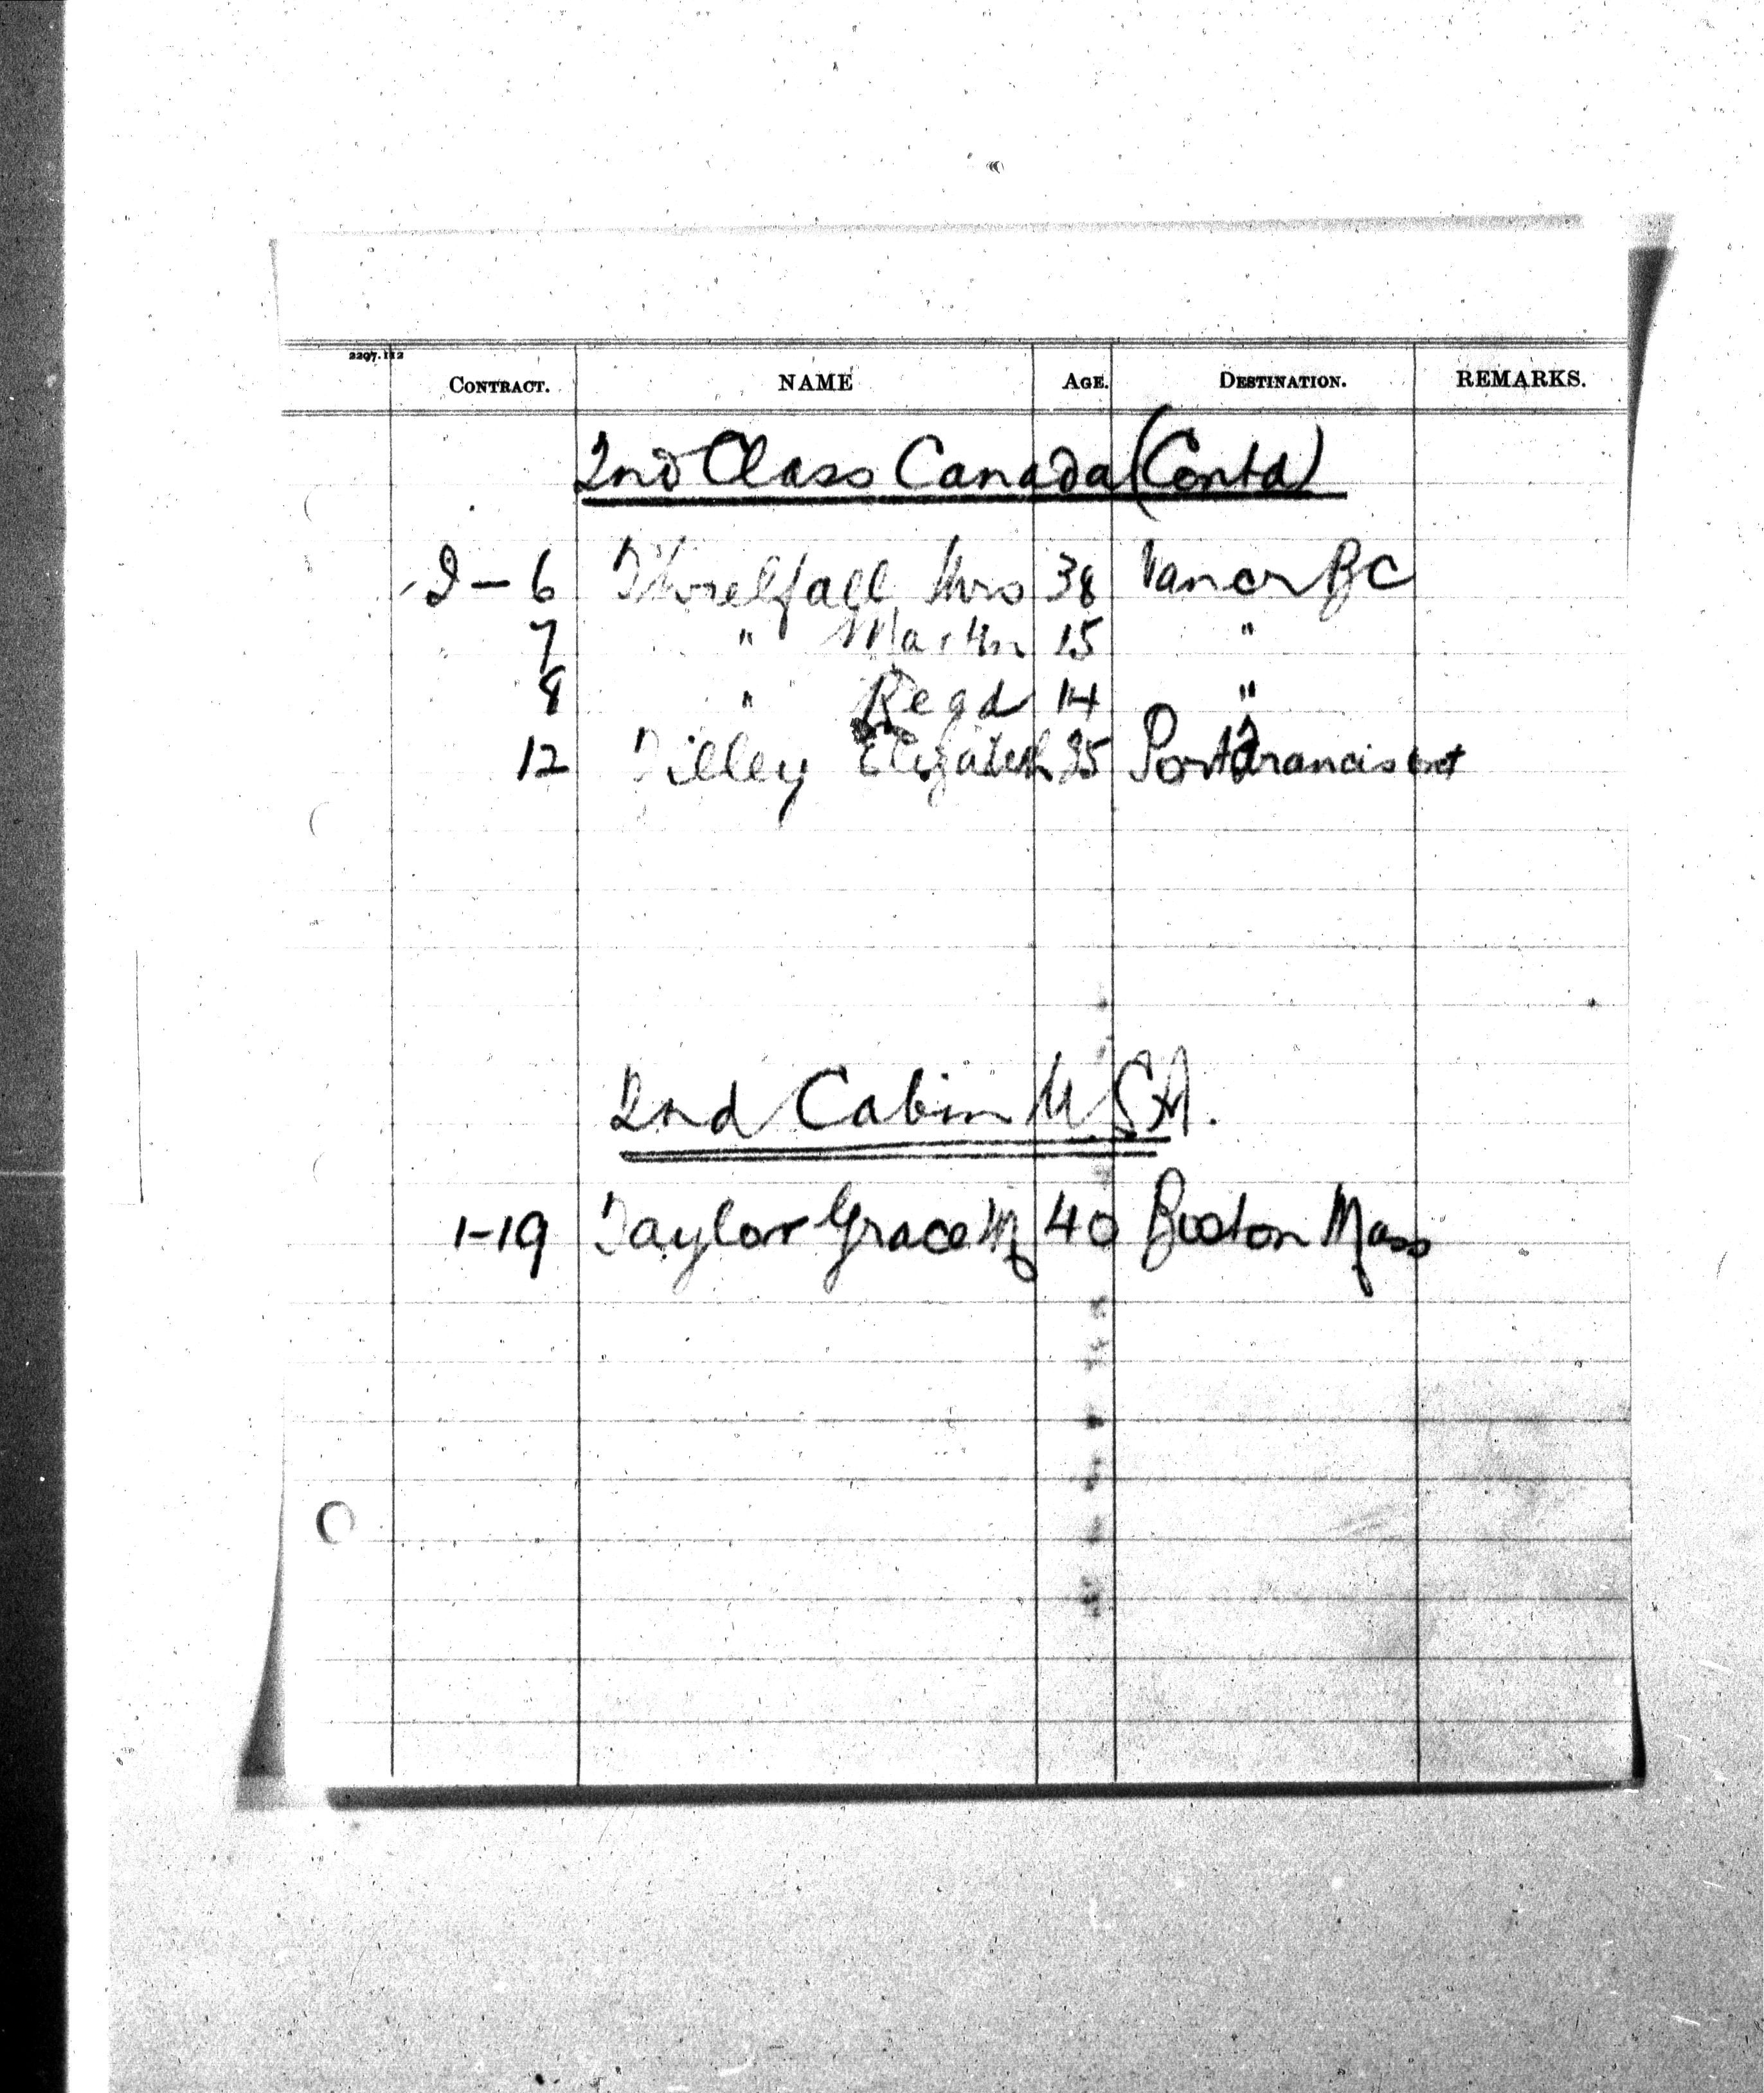 2297.112
CONTRACT. NAME AGE. DESTINATION. REMARKS.
2nd Class Canada (Contd)
2-6 Threlfall Mrs 38 Vancr BC
7 " Martin 15 "
8 " Regd 14 "
12 Tilley Elizabeth 25 Port Francis Ont
2nd Cabin U.S.A.
1-19 Taylor Grace M 40 Boston Mass